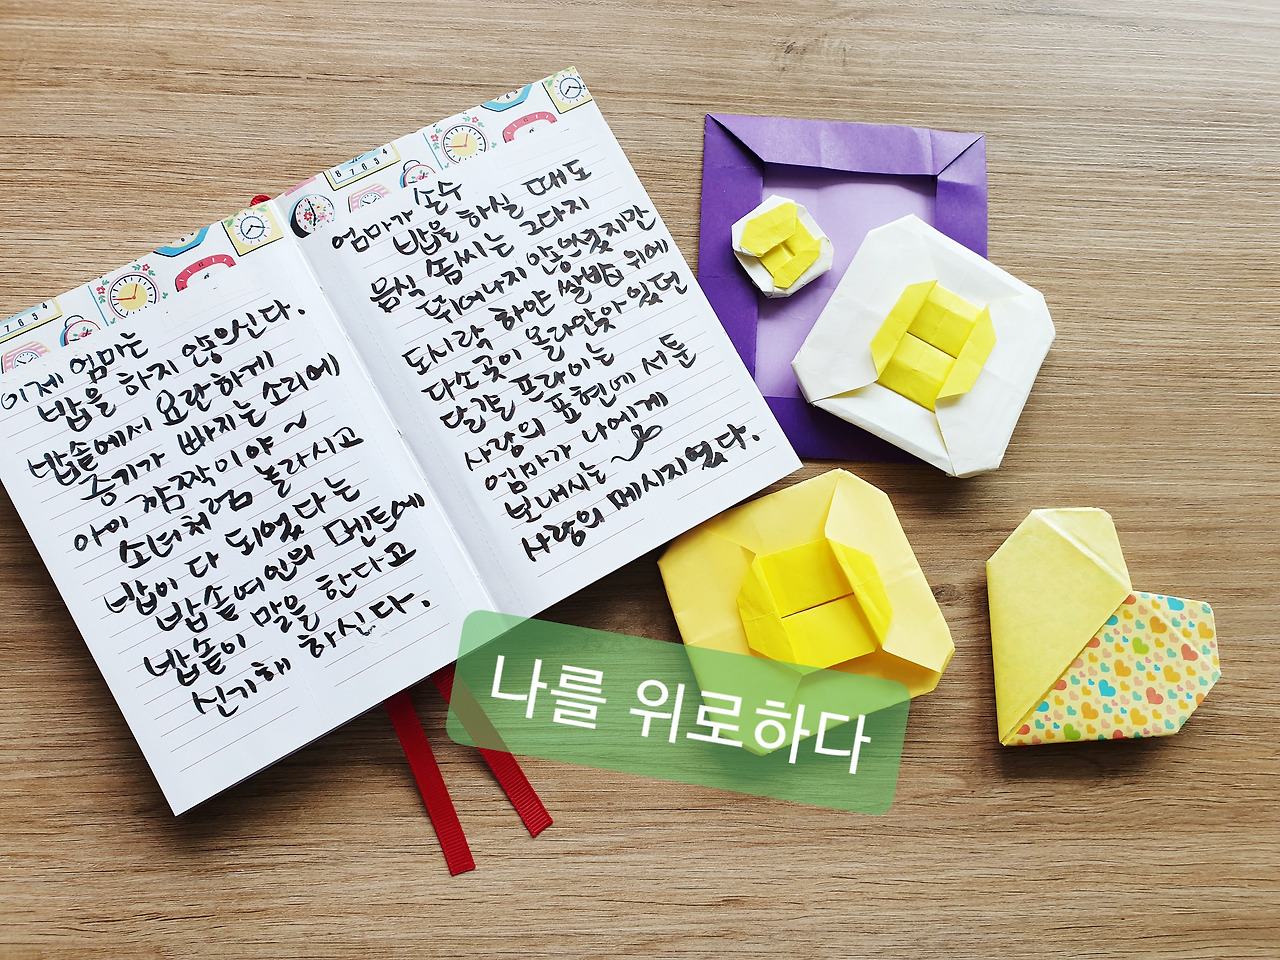 이제 엄마는
밥을 하지 않으신다.
밥솥에서 요란하게
증기가 빠지는 소리에
아이 깜짝이야~
소녀처럼 놀라시고
밥이 다 되었다는
밥솥여인의 멘트에
밥솥이 말을 한다고
신기해 하신다.
엄마가 손수
밥을 하실 때도
음식 솜씨는 그다지
뛰어나지 않았지만
도시락 하얀 쌀밥 위에
다소곳이 올라앉아있던
달걀 프라이는
사랑의 표현에 서툰
엄마가 나에게
보내시는
사랑의 메시지였다.
나를 위로하다